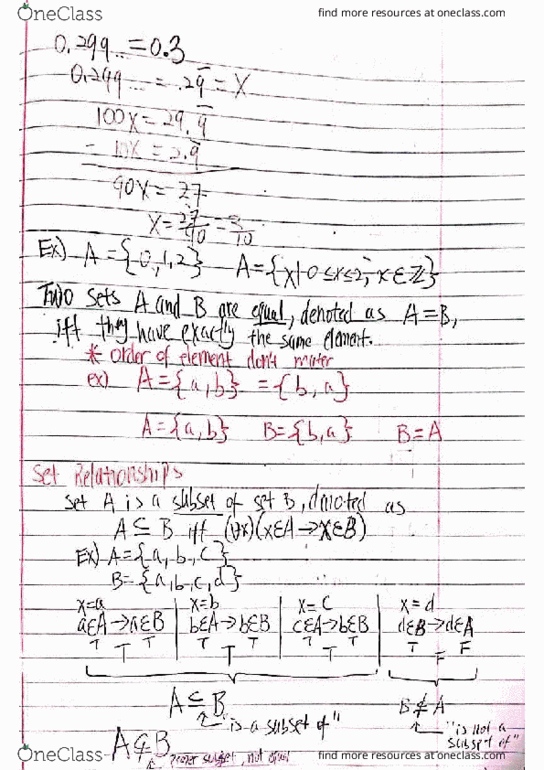 OneClass
find more resources at oneclass.com
0.299... = 0.3
0.299... = .29̅ = X
100X = 29.9̅
- 10X = 2.9̅
90X = 27
X = 27/90 = 3/10
Ex) A = {0,1,2} A = {x|0≤x≤2, x∈ℤ}
Two sets A and B are equal, denoted as A = B,
iff they have exactly the same element.
* order of element don't mater
ex) A = {a,b} = {b,a}
A = {a,b} B = {b,a} B = A
Set Relationships
Set A is a subset of set B, denoted as
A ⊆ B iff (∀x)(x∈A → x∈B)
Ex) A = {a,b,c}
B = {a,b,c,d}
x=a x=b x=c x=d
a∈A → a∈B b∈A → b∈B c∈A → b∈B d∈B → d∈A
T T T T T T T F
T T T F
A ⊆ B B ⊈ A
"is a subset of" "is not a
subset of"
A ⊊ B
proper subset, not equal
OneClass
find more resources at oneclass.com